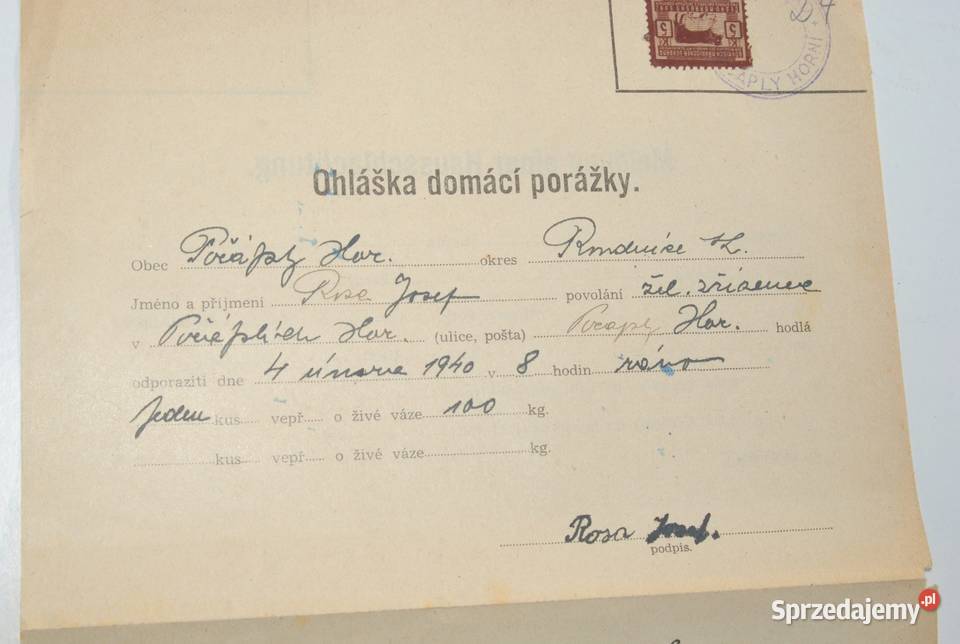 5 K 5
ČAPLY HORNÍ
Ohláška domácí porážky.
Obec Počáply Hor. okres Roudnice n/L.
Jméno a příjmení Rosa Josef povolání žel. zřízenec
v Počáplích Hor. (ulice, pošta) Počaply Hor. hodlá
odporaziti dne 4 února 1940 v 8 hodin ráno
jeden kus vepř. o živé váze 100 kg.
kus vepř. o živé váze kg.
Rosa Josef.
podpis.
Sprzedajemy.pl